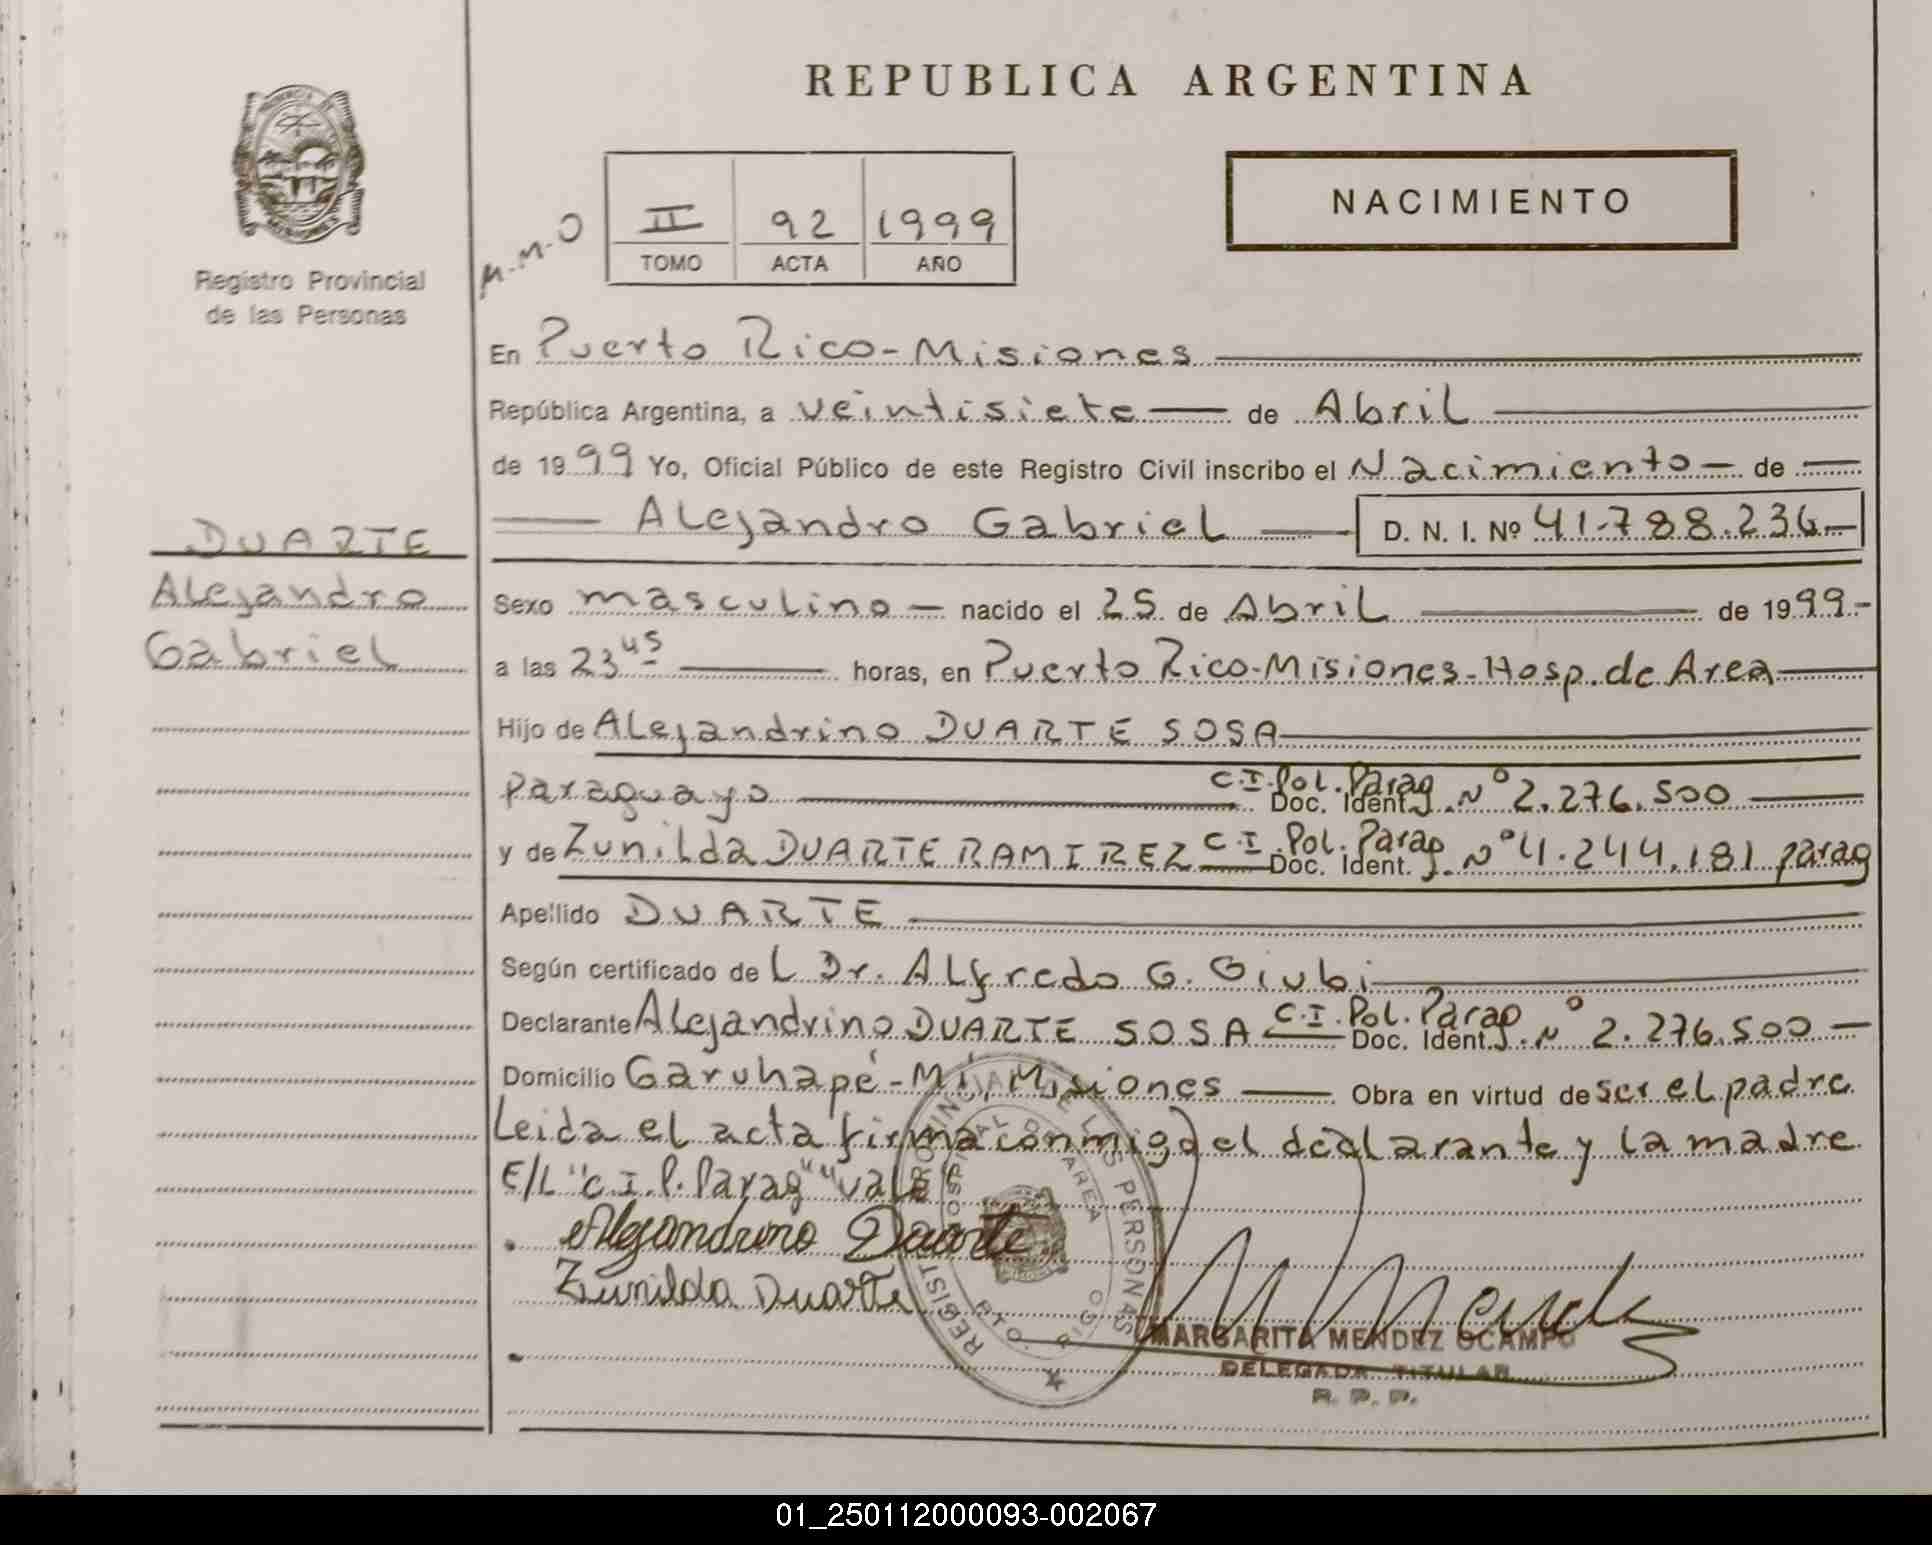 REPUBLICA ARGENTINA
NACIMIENTO
II 92 1999
TOMO ACTA AÑO
M.M.O
Registro Provincial
de las Personas
DUARTE
Alejandro
Gabriel
En Puerto Rico-Misiones
República Argentina, a veintisiete de Abril
de 1999 Yo, Oficial Público de este Registro Civil inscribo el Nacimiento de
Alejandro Gabriel D. N. I. Nº 41.788.236
Sexo masculino nacido el 25 de Abril de 1999
a las 23 45 horas, en Puerto Rico-Misiones-Hosp. de Area
Hijo de Alejandrino DUARTE SOSA
paraguayo C.I. Pol. Parag Doc. Ident. Nº 2.276.500
y de Zunilda DUARTE RAMIREZ C.I. Pol. Parag Doc. Ident. Nº 4.244.181 parag
Apellido DUARTE
Según certificado del Dr. Alfredo G. Giubi
Declarante Alejandrino DUARTE SOSA C.I. Pol. Parag Doc. Ident. Nº 2.276.500
Domicilio Garuhapé-Mí, Misiones Obra en virtud de ser el padre
Leida el acta firma conmigo el declarante y la madre
E/L "C.I.P. Parag" "vale"
Alejandrino Duarte
Zunilda Duarte
REGISTRO PROVINCIAL DE LAS PERSONAS
HOSPITAL DE AREA
PTO. RICO
MARGARITA MENDEZ OCAMPO
DELEGADA TITULAR
R. P. P.
01_250112000093-002067